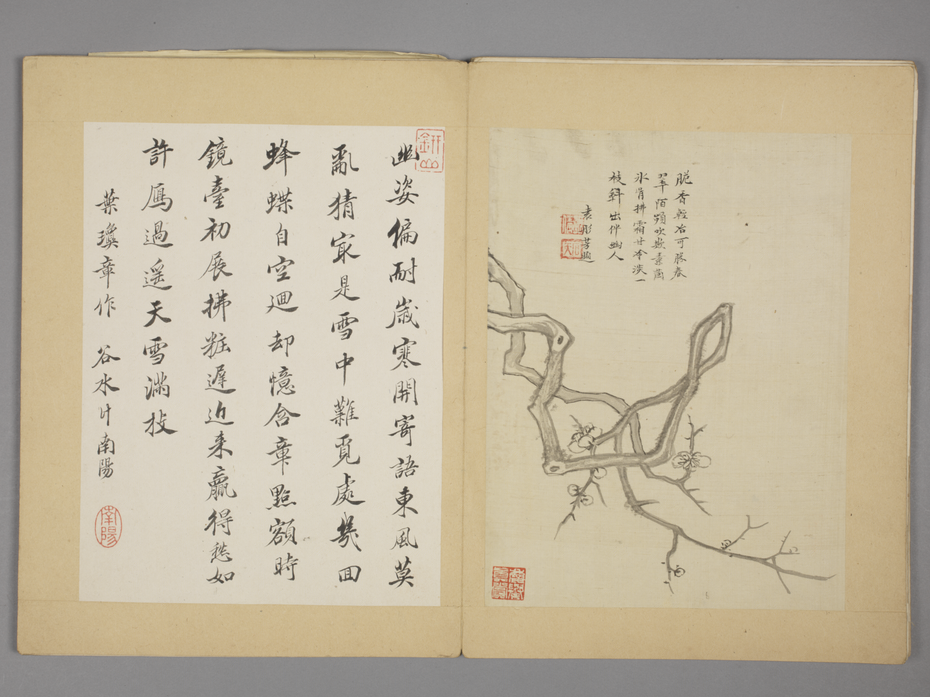 脆香輕冶可勝春
陌頻吹數素
氷骨拂霜甘冷淡一
枝斜出伴幽人
袁彤芳題
幽姿偏耐歲寒開寄語東風莫
亂猜冣是雪中難覓處幾回
蜂蝶自空迴却憶含章點額時
鏡臺初展拂粧遲近来贏得愁如
許鴈過遥天雪滿枝
葉璚章作 谷水 南陽
南陽